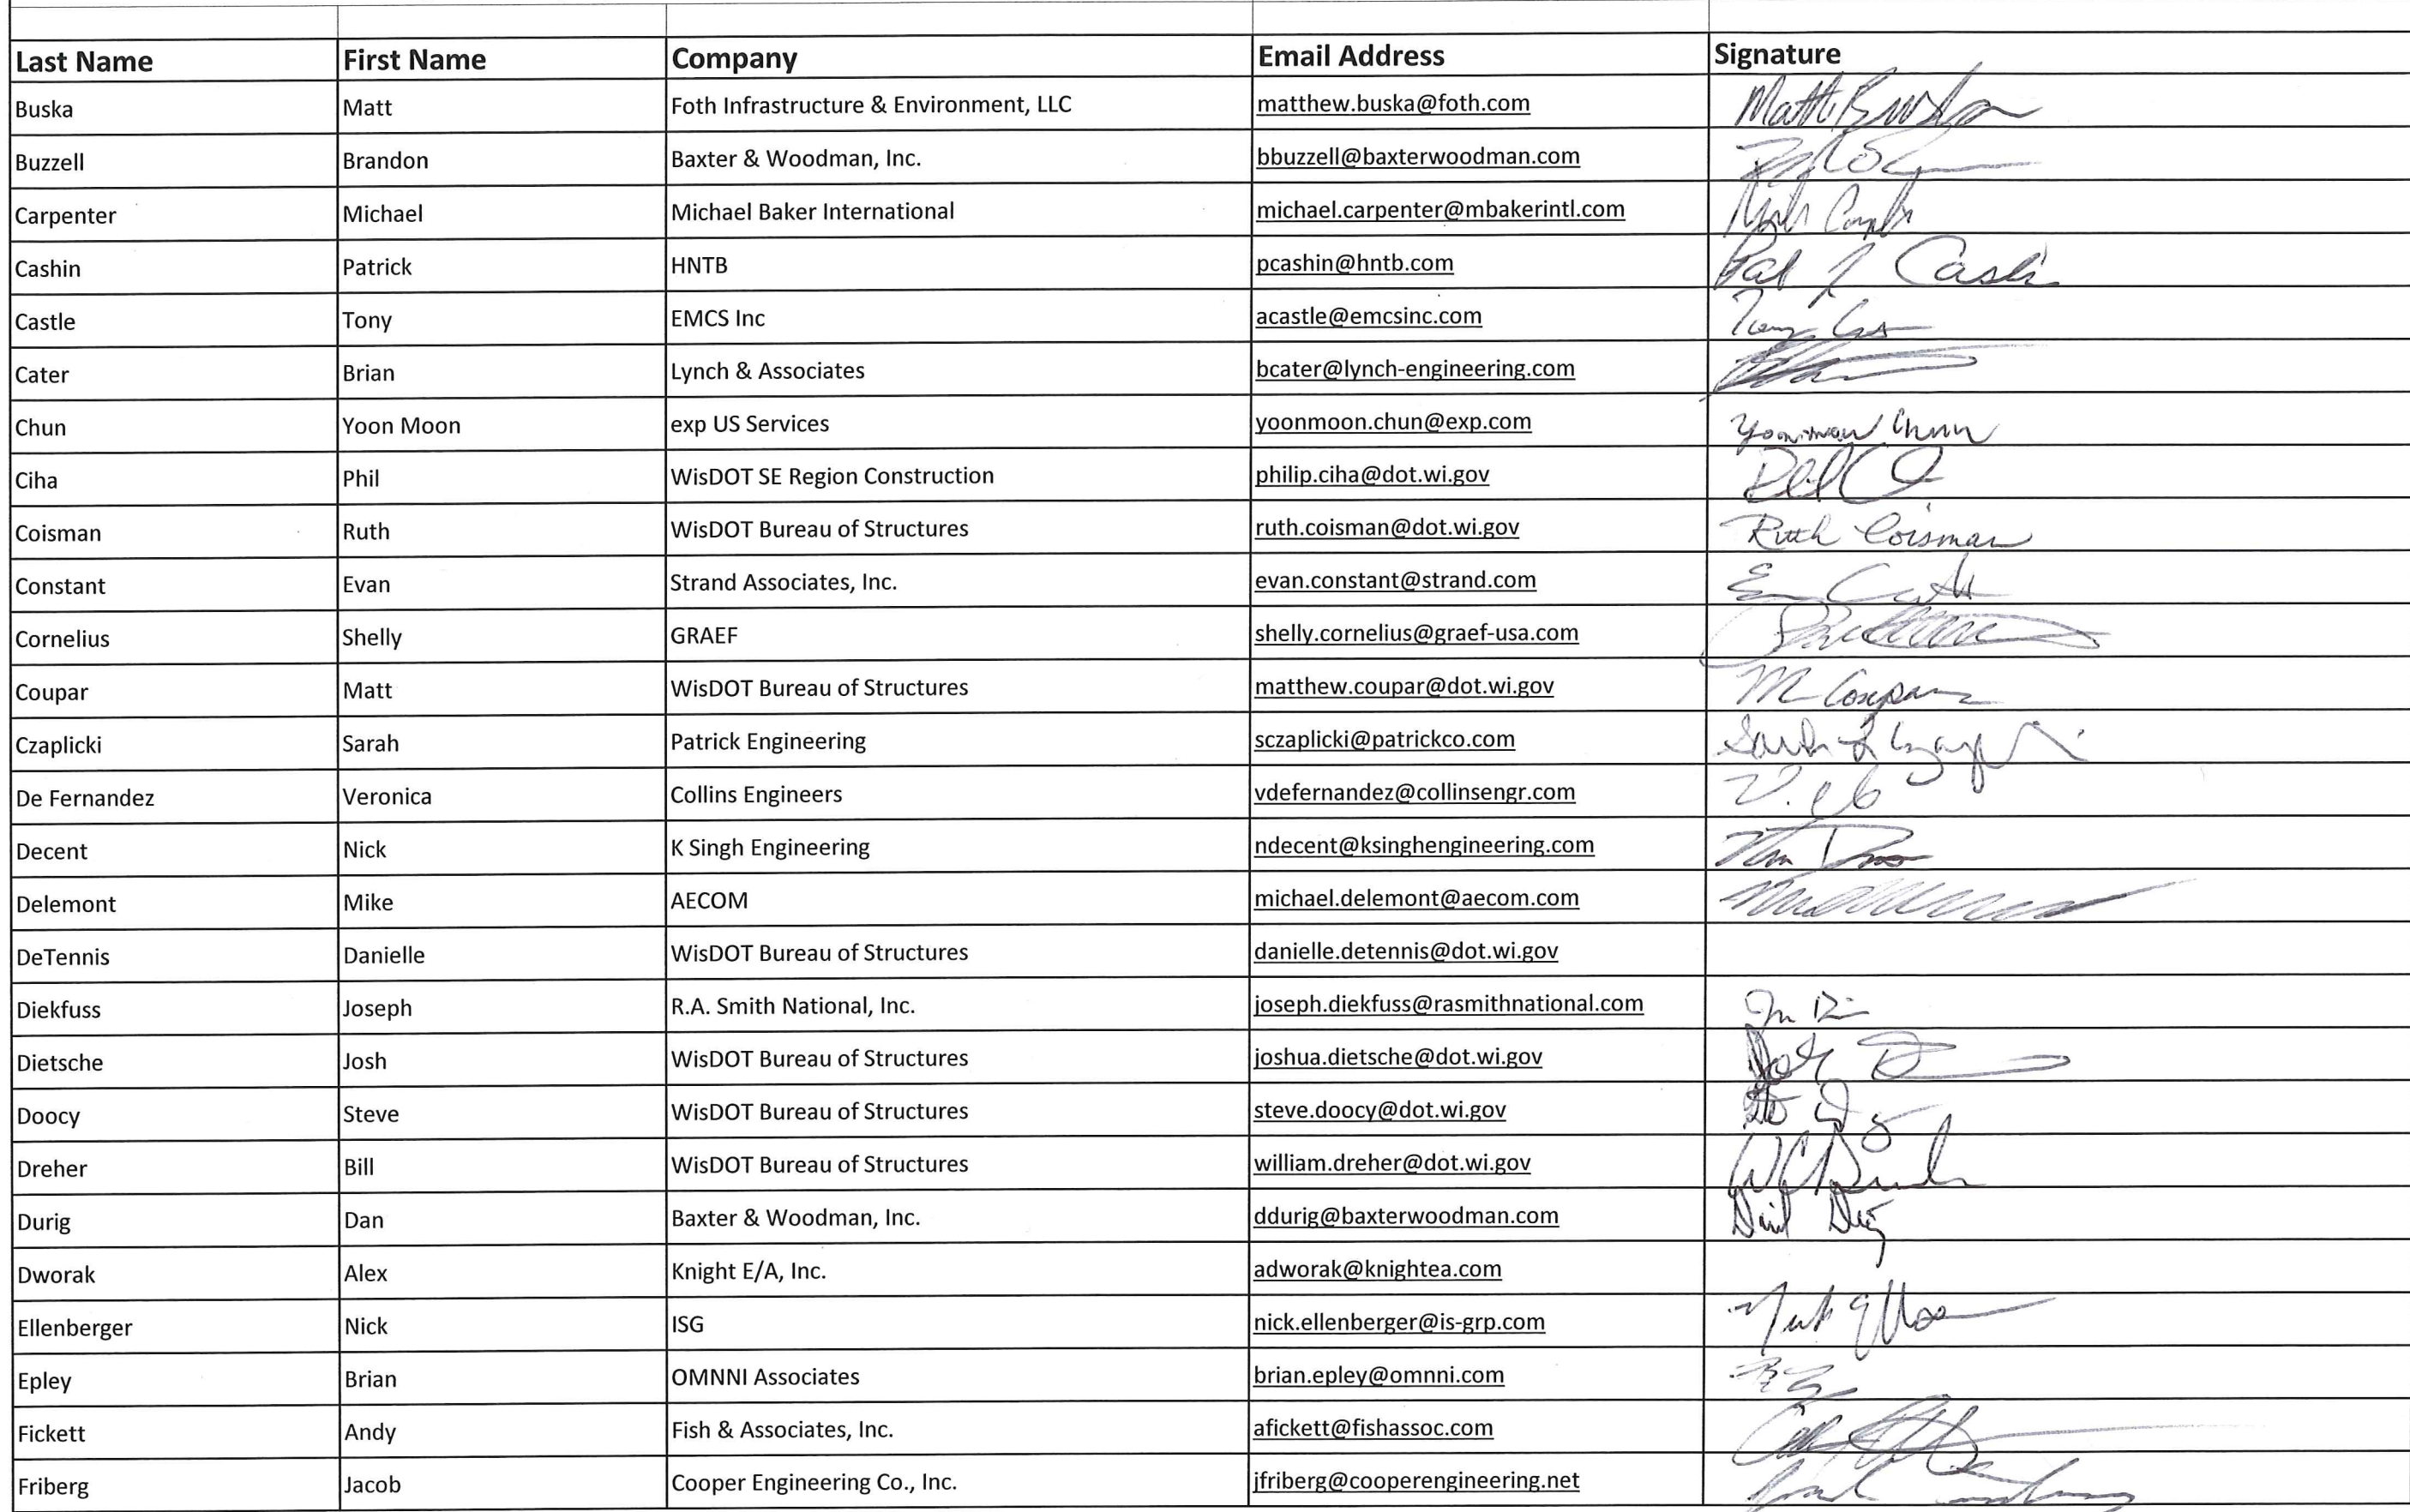 Last Name First Name Company Email Address Signature
Buska Matt Foth Infrastructure & Environment, LLC matthew.buska@foth.com Matt Buska
Buzzell Brandon Baxter & Woodman, Inc. bbuzzell@baxterwoodman.com
Carpenter Michael Michael Baker International michael.carpenter@mbakerintl.com
Cashin Patrick HNTB pcashin@hntb.com
Castle Tony EMCS Inc acastle@emcsinc.com
Cater Brian Lynch & Associates bcater@lynch-engineering.com
Chun Yoon Moon exp US Services yoonmoon.chun@exp.com
Ciha Phil WisDOT SE Region Construction philip.ciha@dot.wi.gov
Coisman Ruth WisDOT Bureau of Structures ruth.coisman@dot.wi.gov Ruth Coisman
Constant Evan Strand Associates, Inc. evan.constant@strand.com
Cornelius Shelly GRAEF shelly.cornelius@graef-usa.com
Coupar Matt WisDOT Bureau of Structures matthew.coupar@dot.wi.gov M Coupar
Czaplicki Sarah Patrick Engineering sczaplicki@patrickco.com
De Fernandez Veronica Collins Engineers vdefernandez@collinsengr.com
Decent Nick K Singh Engineering ndecent@ksinghengineering.com
Delemont Mike AECOM michael.delemont@aecom.com
DeTennis Danielle WisDOT Bureau of Structures danielle.detennis@dot.wi.gov
Diekfuss Joseph R.A. Smith National, Inc. joseph.diekfuss@rasmithnational.com
Dietsche Josh WisDOT Bureau of Structures joshua.dietsche@dot.wi.gov
Doocy Steve WisDOT Bureau of Structures steve.doocy@dot.wi.gov
Dreher Bill WisDOT Bureau of Structures william.dreher@dot.wi.gov
Durig Dan Baxter & Woodman, Inc. ddurig@baxterwoodman.com
Dworak Alex Knight E/A, Inc. adworak@knightea.com
Ellenberger Nick ISG nick.ellenberger@is-grp.com
Epley Brian OMNNI Associates brian.epley@omnni.com
Fickett Andy Fish & Associates, Inc. afickett@fishassoc.com
Friberg Jacob Cooper Engineering Co., Inc. jfriberg@cooperengineering.net